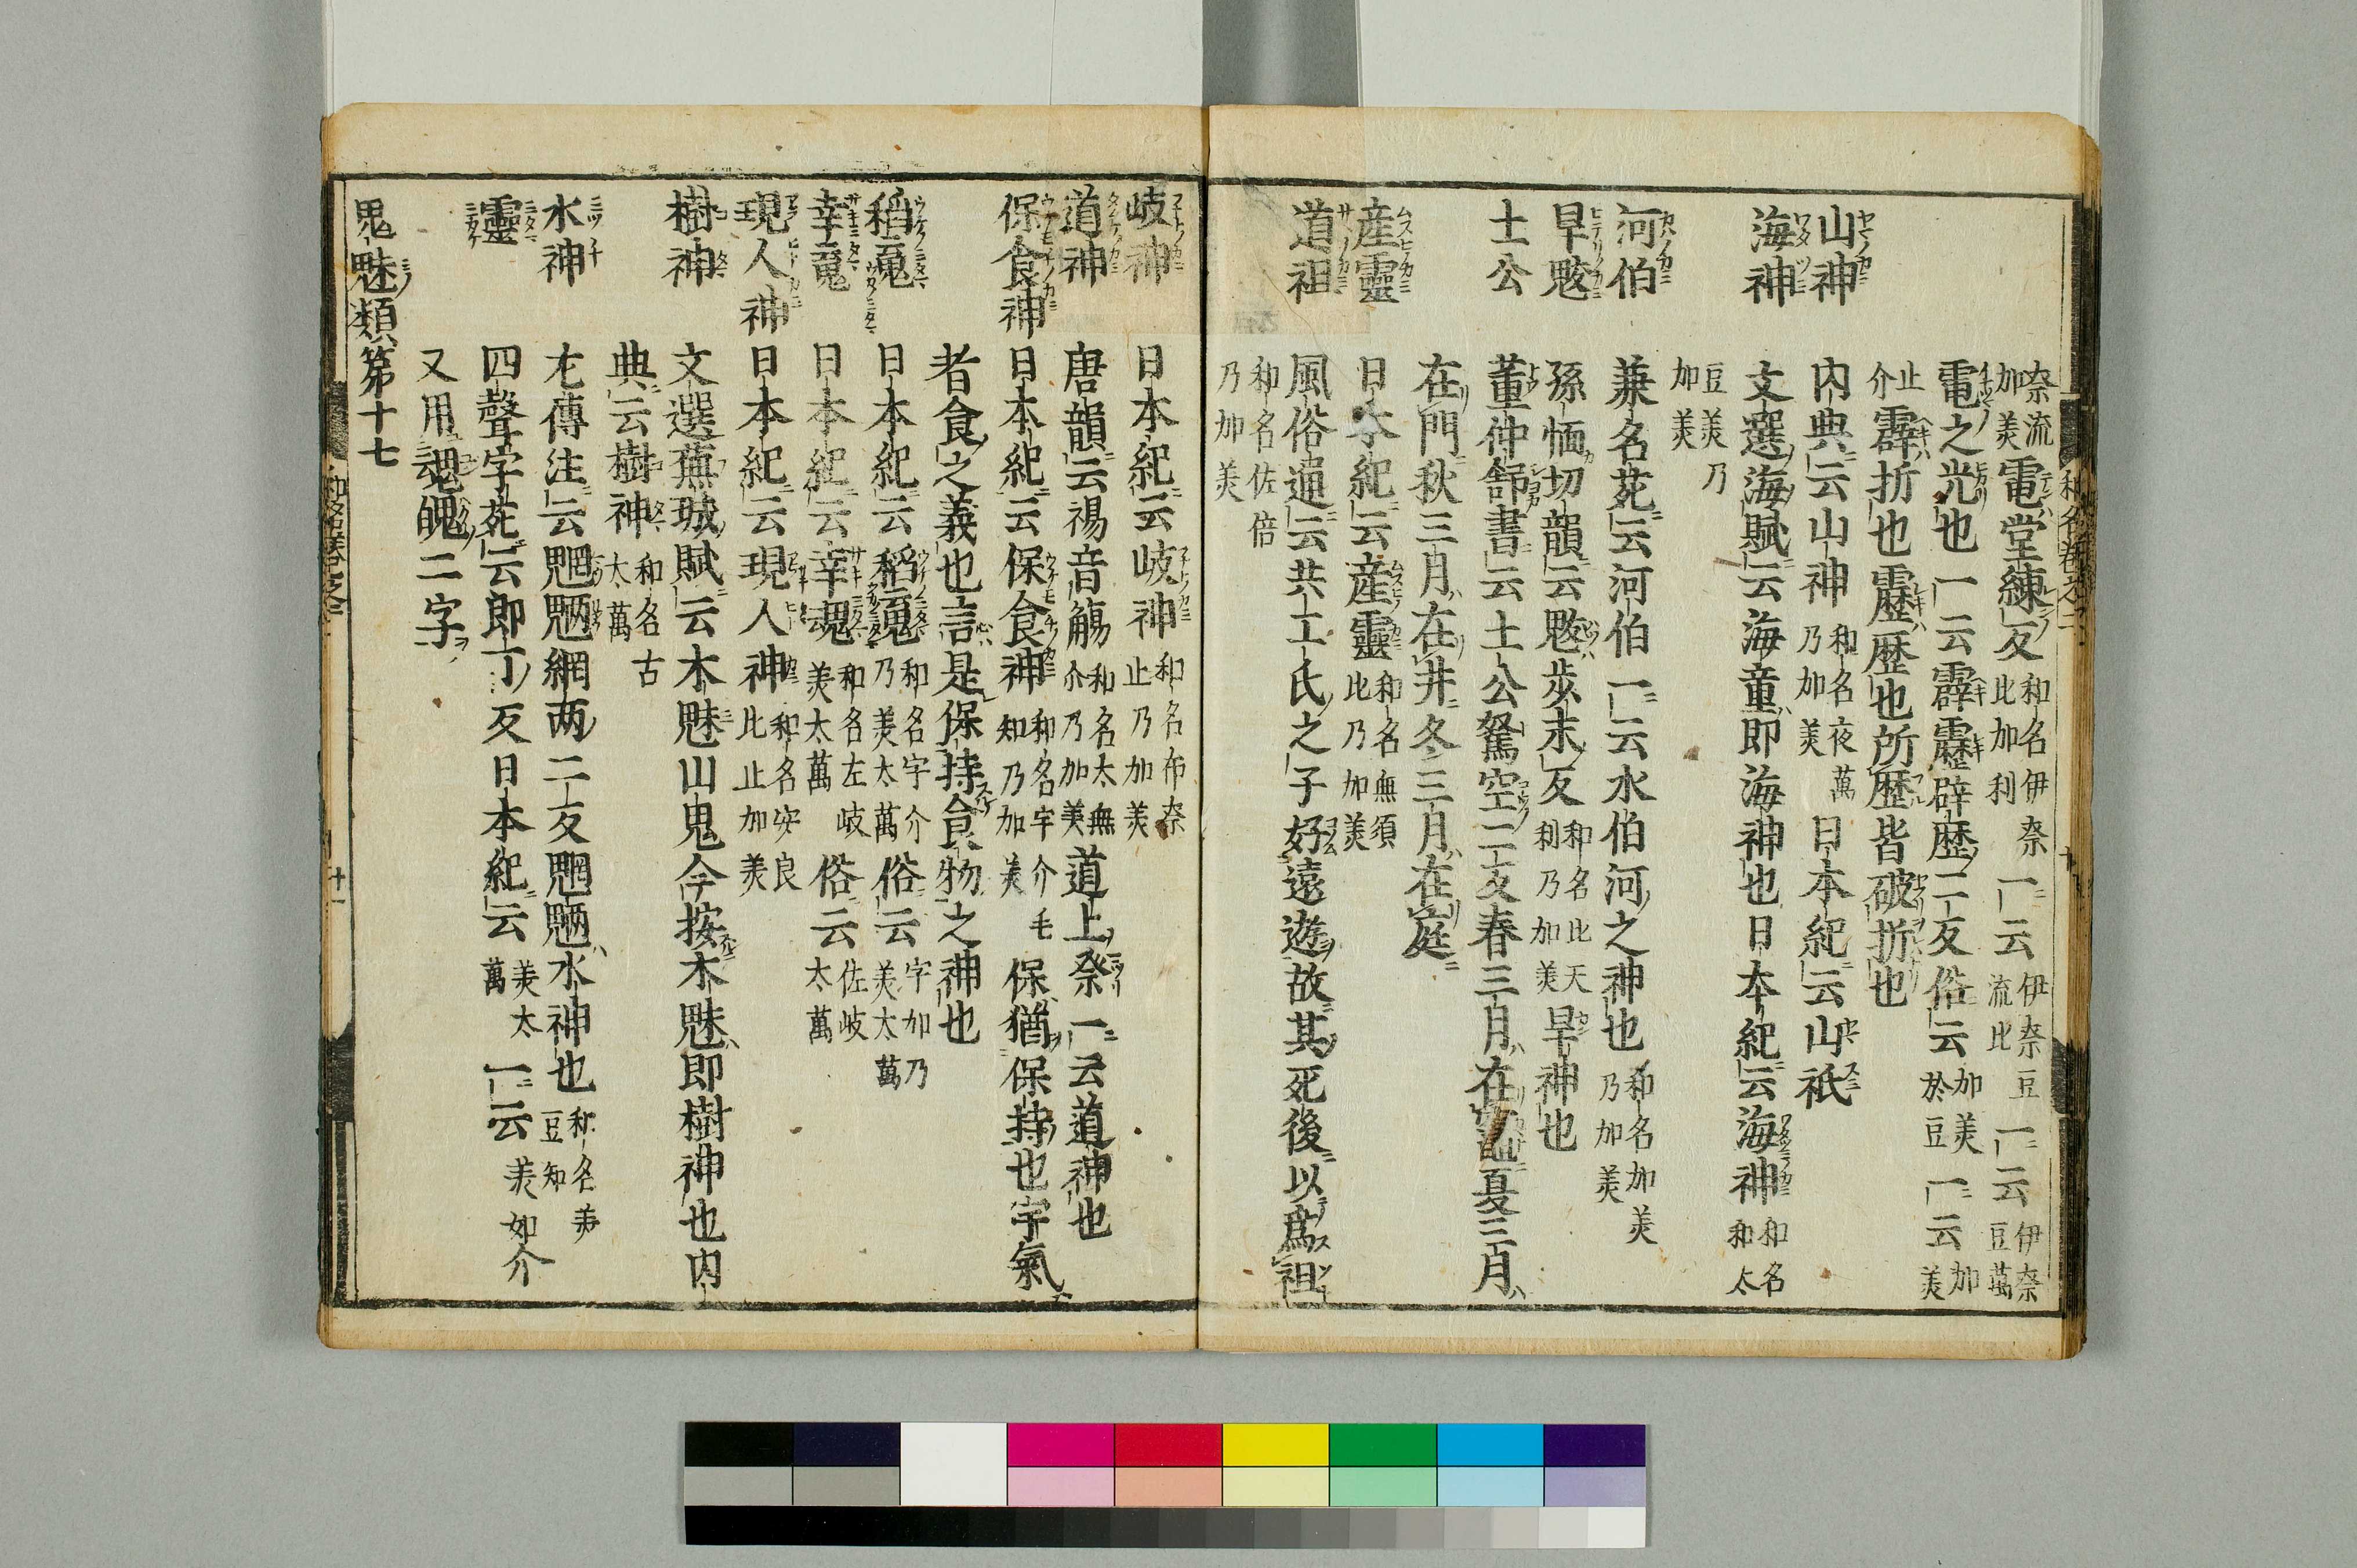 奈流加美電堂練反和名伊奈比加利一云伊奈豆流比一云伊奈豆萬
電之光也一云霹靂辟歴二反俗云加美於豆一云加美
止介霹折也靂歴也所歴皆破折也
山神 内典云山神和名夜萬乃加美日本紀云山祇
海神 文選海賦云海童即海神也日本紀云海神和名和太
豆美乃加美
河伯 兼名苑云河伯一云水伯河之神也和名加美乃加美
旱魃 孫愐切韻云魃歩末反和名比天利乃加美旱神也
土公 董仲舒書云土公駑空二反春三月在竈夏三月
在門秋三月在井冬三月在庭
産靈 日本紀云産靈和名無須比乃加美
道祖 風俗通云共工氏之子好遠遊故其死後以爲祖
和名佐倍乃加美
岐神 日本紀云岐神和名布奈止乃加美
道神 唐韻云禓音觴和名太無介乃加美道上祭一云道神也
保食神 日本紀云保食神和名宇介毛知乃加美保猶保持也宇氣
者食之義也言是保持食物之神也
稻魂 日本紀云稻魂和名宇介乃美太萬俗云宇加乃美太萬
幸魂 日本紀云幸魂和名左岐美太萬俗云佐岐太萬
現人神 日本紀云現人神和名安良比止加美
樹神 文選蕪城賦云木魅山鬼今按木魅即樹神也内
典云樹神和名古太萬
水神 左傳注云魍魎網両二反魍魎水神也和名美豆知
靈 四聲字苑云郎丁反日本紀云美太萬一云美加介
又用魂魄二字
鬼魅類第十七